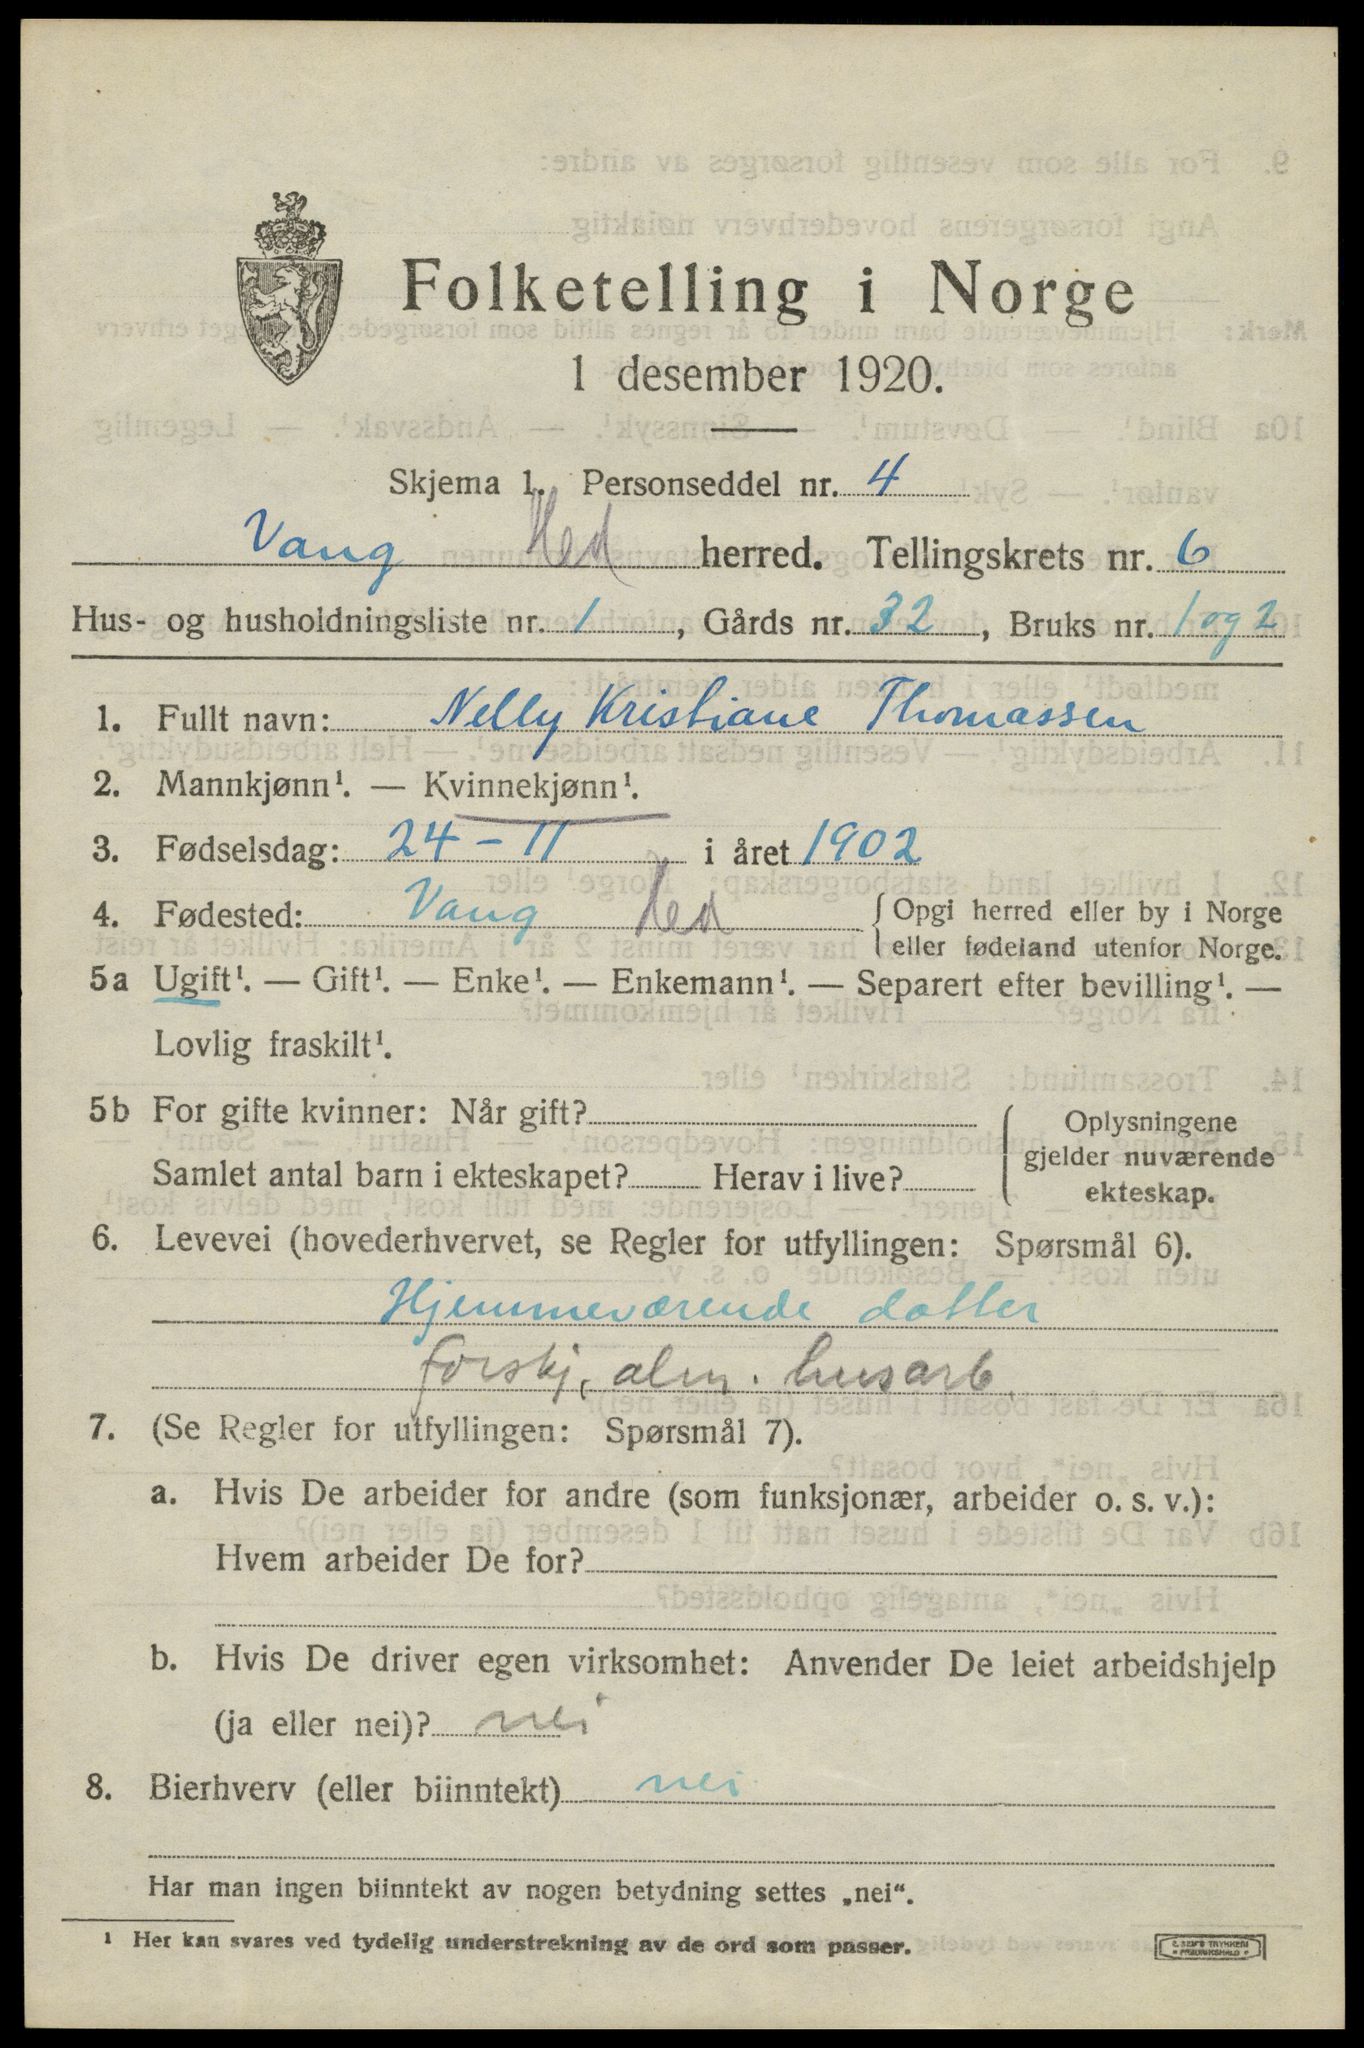 Folketelling i Norge
1 desember 1920.
Skjema 1. Personseddel nr. 4
Vang Hed herred. Tellingskrets nr. 6
Hus- og husholdningsliste nr. 1, Gårds nr. 32, Bruks nr. 1 og 2
1. Fullt navn: Nelly Kristiane Thomassen
2. Mannkjønn¹. — Kvinnekjønn¹.
3. Fødselsdag: 24 - 11 i året 1902
4. Fødested: Vang Hed {Opgi herred eller by i Norge
eller fødeland utenfor Norge.
5a Ugift¹. — Gift¹. — Enke¹. — Enkemann¹. — Separert efter bevilling¹. —
Lovlig fraskilt¹.
5b For gifte kvinner: Når gift?
Samlet antal barn i ekteskapet? Herav i live?
Oplysningene
gjelder nuværende
ekteskap.
6. Levevei (hovederhvervet, se Regler for utfyllingen: Spørsmål 6).
Hjemmeværende datter
forskj. alm. husarb.
7. (Se Regler for utfyllingen: Spørsmål 7).
a. Hvis De arbeider for andre (som funksjonær, arbeider o. s. v.):
Hvem arbeider De for?
b. Hvis De driver egen virksomhet: Anvender De leiet arbeidshjelp
(ja eller nei)? nei
8. Bierhverv (eller biinntekt) nei
Har man ingen biinntekt av nogen betydning settes „nei".
¹ Her kan svares ved tydelig understrekning av de ord som passer.